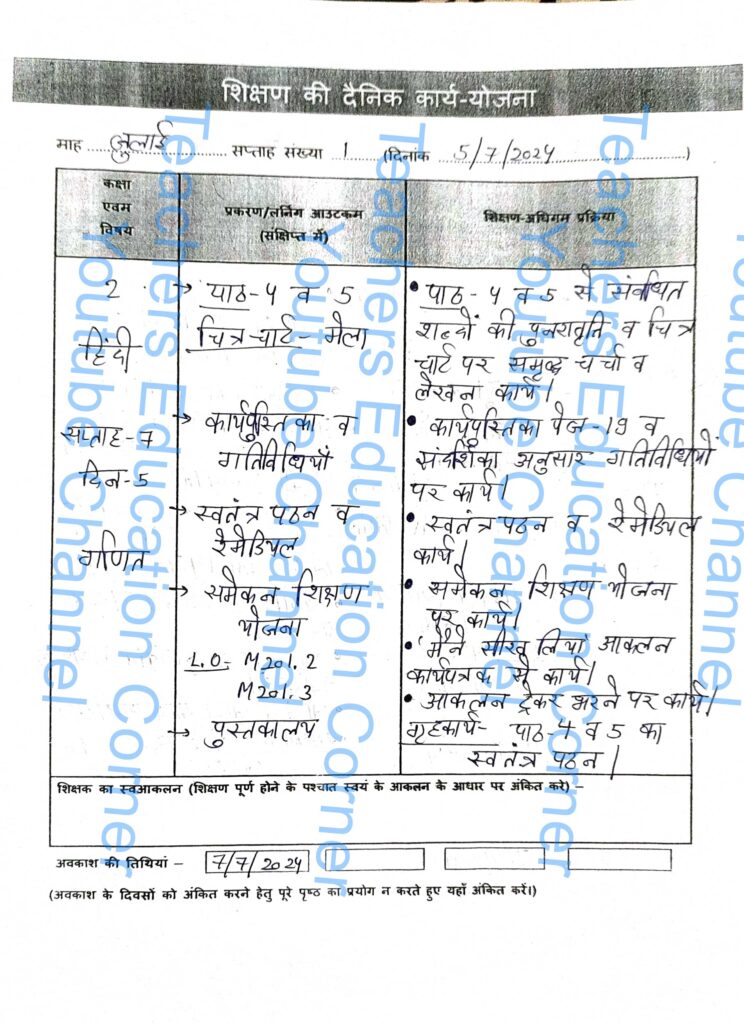 शिक्षण की दैनिक कार्य-योजना
माह जुलाई सप्ताह संख्या 1 (दिनांक 5/7/2024)
कक्षा
एवम
विषय
प्रकरण/लर्निंग आउटकम
(संक्षिप्त में)
शिक्षण-अधिगम प्रक्रिया
2
हिंदी
सप्ताह-7
दिन-5
गणित
→ पाठ-4 व 5
चित्र चार्ट- मेला
→ कार्यपुस्तिका व
गतिविधियाँ
→ स्वतंत्र पठन व
रेमेडियल
→ समेकन शिक्षण
योजना
L.O- M201.2
M201.3
→ पुस्तकालय
• पाठ-4 व 5 से संबंधित
शब्दों की पुनरावृति व चित्र
चार्ट पर समृद्ध चर्चा व
लेखन कार्य।
• कार्यपुस्तिका पेज-19 व
संदर्शिका अनुसार गतिविधियों
पर कार्य।
• स्वतंत्र पठन व रेमेडियल
कार्य।
• समेकन शिक्षण योजना
पर कार्य।
• 'मैंने सीख लिया' आकलन
कार्यपत्रक से कार्य।
• आकलन ट्रेकर भरने पर कार्य।
गृहकार्य- पाठ-4 व 5 का
स्वतंत्र पठन।
शिक्षक का स्वआकलन (शिक्षण पूर्ण होने के पश्चात स्वयं के आकलन के आधार पर अंकित करे) –
अवकाश की तिथियां – 7/7/2024
(अवकाश के दिवसों को अंकित करने हेतु पूरे पृष्ठ का प्रयोग न करते हुए यहाँ अंकित करें।)
Teachers Education Corner
Youtube Channel
Teachers Education Corner
Youtube Channel
Teachers Education Corner
Youtube Channel